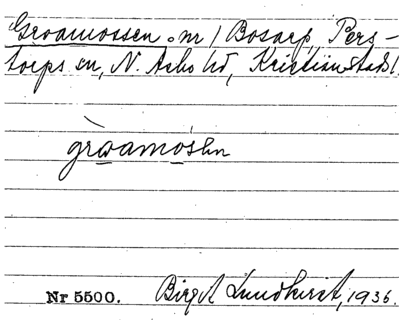 Groamossen nr 1 Bosarp, Pers-
torps sn, N. Åsbo hd, Kristianstads l.
gròamòsən
Nr 5500. Birgit Lundkvist, 1936.